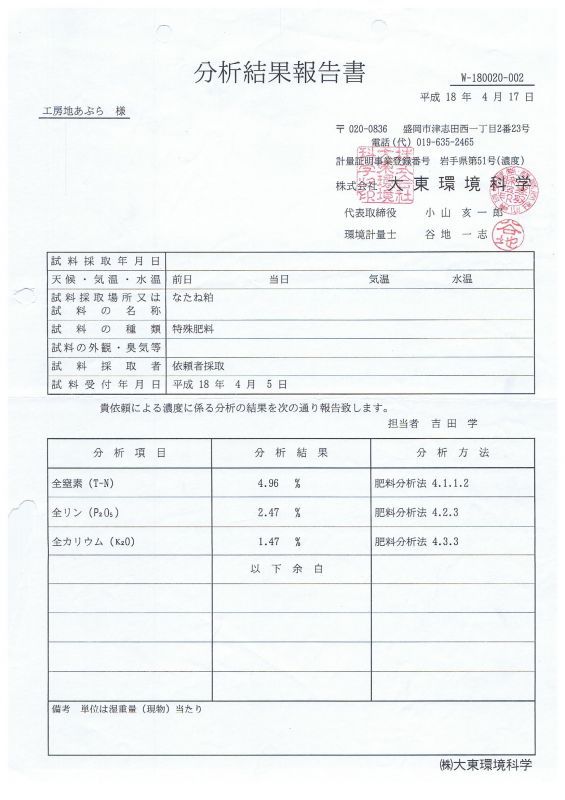 分析結果報告書
W-180020-002
平成 18 年 4 月 17 日
工房地あぶら 様
〒 020-0836 盛岡市津志田西一丁目2番23号
電話(代) 019-635-2465
計量証明事業登録番号 岩手県第51号(濃度)
株式会社 大東環境科学
代表取締役 小山 亥一郎
環境計量士 谷地 一志
試料採取年月日
天候・気温・水温 前日 当日 気温 水温
試料採取場所又は なたね粕
試料の名称
試料の種類 特殊肥料
試料の外観・臭気等
試料採取者 依頼者採取
試料受付年月日 平成 18 年 4 月 5 日
貴依頼による濃度に係る分析の結果を次の通り報告致します。
担当者 吉田 学
分析項目 分析結果 分析方法
全窒素 (T-N) 4.96 % 肥料分析法 4.1.1.2
全リン (P₂O₅) 2.47 % 肥料分析法 4.2.3
全カリウム (K₂O) 1.47 % 肥料分析法 4.3.3
以下余白
備考 単位は湿重量(現物)当たり
㈱大東環境科学